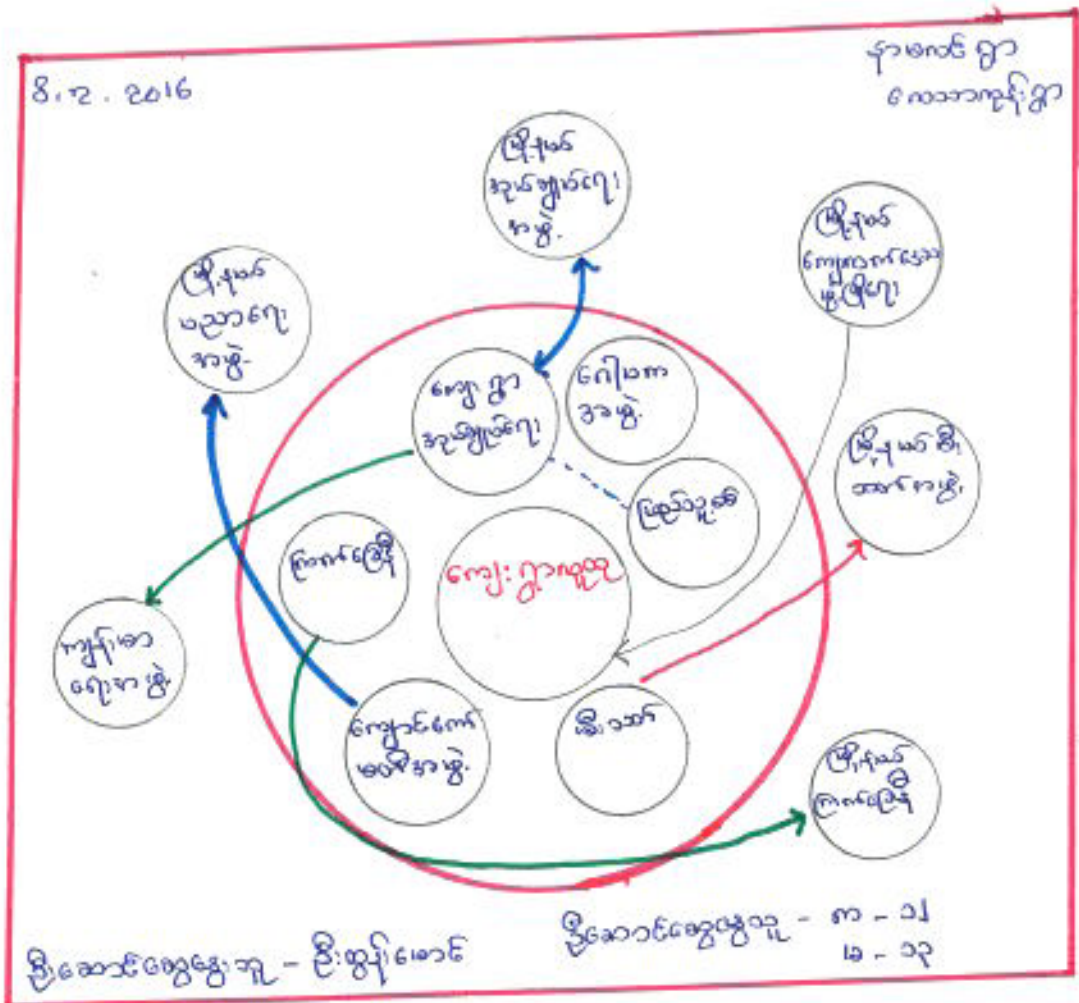 8.၇.2016
နာမလင် ရွာ
လေသာကုန်းရွာ
မြို့နယ်
အုပ်ချုပ်ရေး
အဖွဲ့
မြို့နယ်
ကျေးလက်ဒေသ
ဖွံ့ဖြိုးရေး
မြို့နယ်
ပညာရေး
အဖွဲ့
ကျေးရွာ
အုပ်ချုပ်ရေး
ဂေါပက
အဖွဲ့
မြို့နယ် မီး
သတ်အဖွဲ့
ပြည်သူ့စစ်
ကြက်ခြေနီ
ကျေးရွာလူထု
ကျန်းမာ
ရေးအဖွဲ့
ကျောင်းကော်
မတီအဖွဲ့
မီးသတ်
မြို့နယ်
ကြက်ခြေနီ
ဦးဆောင်ဆွေးနွေးသူ - ဦးထွန်းမောင်
ဦးဆောင်ဆွေးနွေးသူ - ကာ - ၁၂
မ - ၁၃